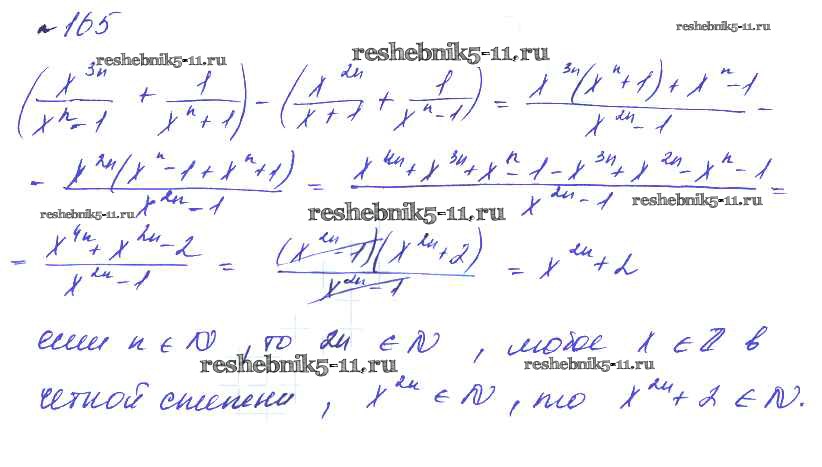 ~165
reshebnik5-11.ru
reshebnik5-11.ru
reshebnik5-11.ru
(x^{3n}/(x^n - 1) + 1/(x^n + 1)) - (x^{2n}/(x + 1) + 1/(x^n - 1)) = (x^{3n}(x^n + 1) + x^n - 1)/(x^{2n} - 1) -
- x^{2n}(x^n - 1 + x^n + 1)/(x^{2n} - 1) = (x^{4n} + x^{3n} + x^n - 1 - x^{3n} + x^{2n} - x^n - 1)/(x^{2n} - 1) =
reshebnik5-11.ru
reshebnik5-11.ru
reshebnik5-11.ru
= (x^{4n} + x^{2n} - 2)/(x^{2n} - 1) = (x^{2n} - 1)(x^{2n} + 2)/(x^{2n} - 1) = x^{2n} + 2
если n ∈ N, то 2n ∈ N, любое x ∈ Z в
reshebnik5-11.ru
reshebnik5-11.ru
четной степени, x^{2n} ∈ N, то x^{2n} + 2 ∈ N.